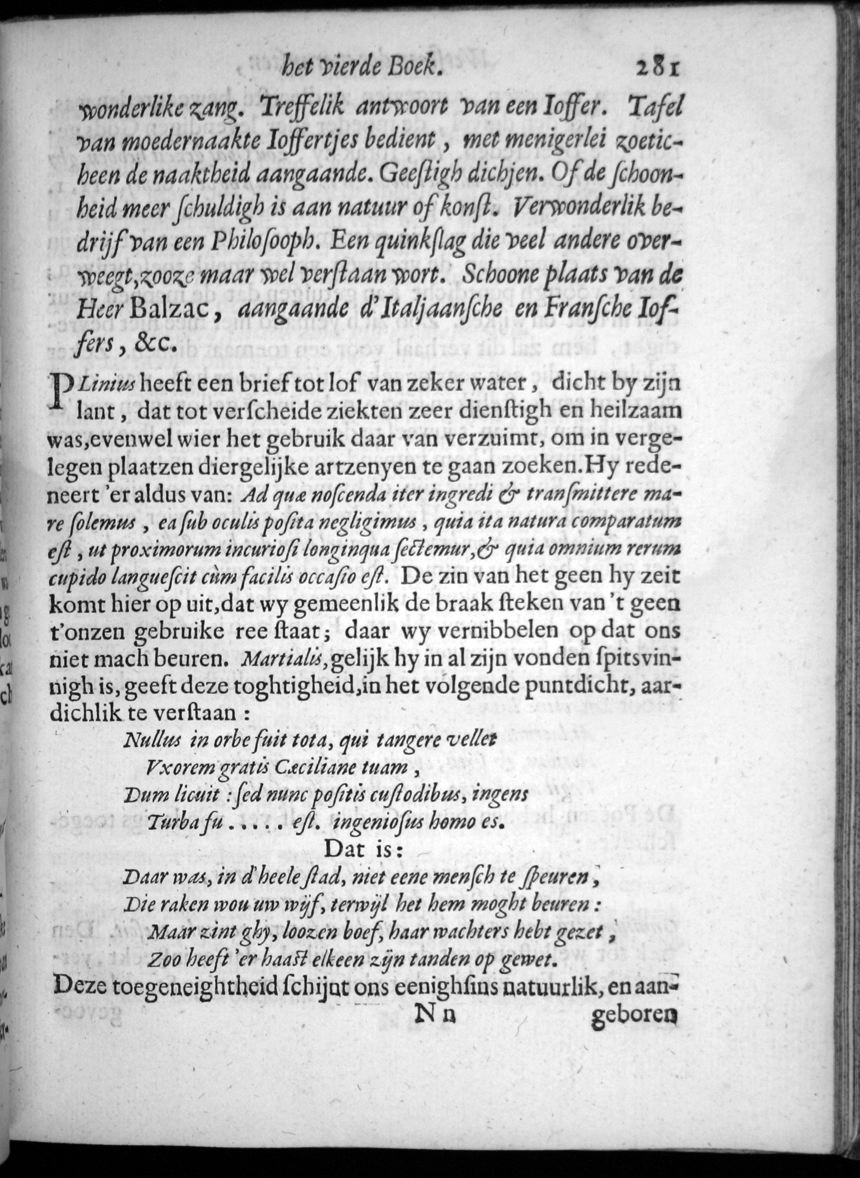 het vierde Boek. 281
wonderlike zang. Treffelik antwoort van een Ioffer. Tafel
van moedernaakte Ioffertjes bedient, met menigerlei zoetic-
heen de naaktheid aangaande. Geeſtigh dichjen. Of de ſchoon-
heid meer ſchuldigh is aan natuur of konſt. Verwonderlik be-
drijf van een Philoſooph. Een quinkſlag die veel andere over-
weegt, zooze maar wel verſtaan wort. Schoone plaats van de
Heer Balzac, aangaande d'Italjaanſche en Franſche Iof-
fers, &c.
PLinius heeft een brief tot lof van zeker water, dicht by zijn
lant, dat tot verſcheide ziekten zeer dienſtigh en heilzaam
was, evenwel wier het gebruik daar van verzuimt, om in verge-
legen plaatzen diergelijke artzenyen te gaan zoeken. Hy rede-
neert 'er aldus van: Ad quæ noſcenda iter ingredi & tranſmittere ma-
re ſolemus, ea ſub oculis poſita negligimus, quia ita natura comparatum
eſt, ut proximorum incurioſi longinqua ſectemur, & quia omnium rerum
cupido langueſcit cùm facilis occaſio eſt. De zin van het geen hy zeit
komt hier op uit, dat wy gemeenlik de braak ſteken van 't geen
t'onzen gebruike ree ſtaat; daar wy vernibbelen op dat ons
niet mach beuren. Martialis, gelijk hy in al zijn vonden ſpitsvin-
nigh is, geeft deze toghtigheid, in het volgende puntdicht, aar-
dichlik te verſtaan:
Nullus in orbe fuit tota, qui tangere vellet
Vxorem gratis Cæciliane tuam,
Dum licuit: ſed nunc poſitis cuſtodibus, ingens
Turba fu ..... eſt. ingenioſus homo es.
Dat is:
Daar was, in d'heele ſtad, niet eene menſch te ſpeuren,
Die raken wou uw wijf, terwijl het hem moght beuren:
Maar zint ghy, loozen boef, haar wachters hebt gezet,
Zoo heeft 'er haaſt elkeen zijn tanden op gewet.
Deze toegeneightheid ſchijnt ons eenighſins natuurlik, en aan-
Nn geboren